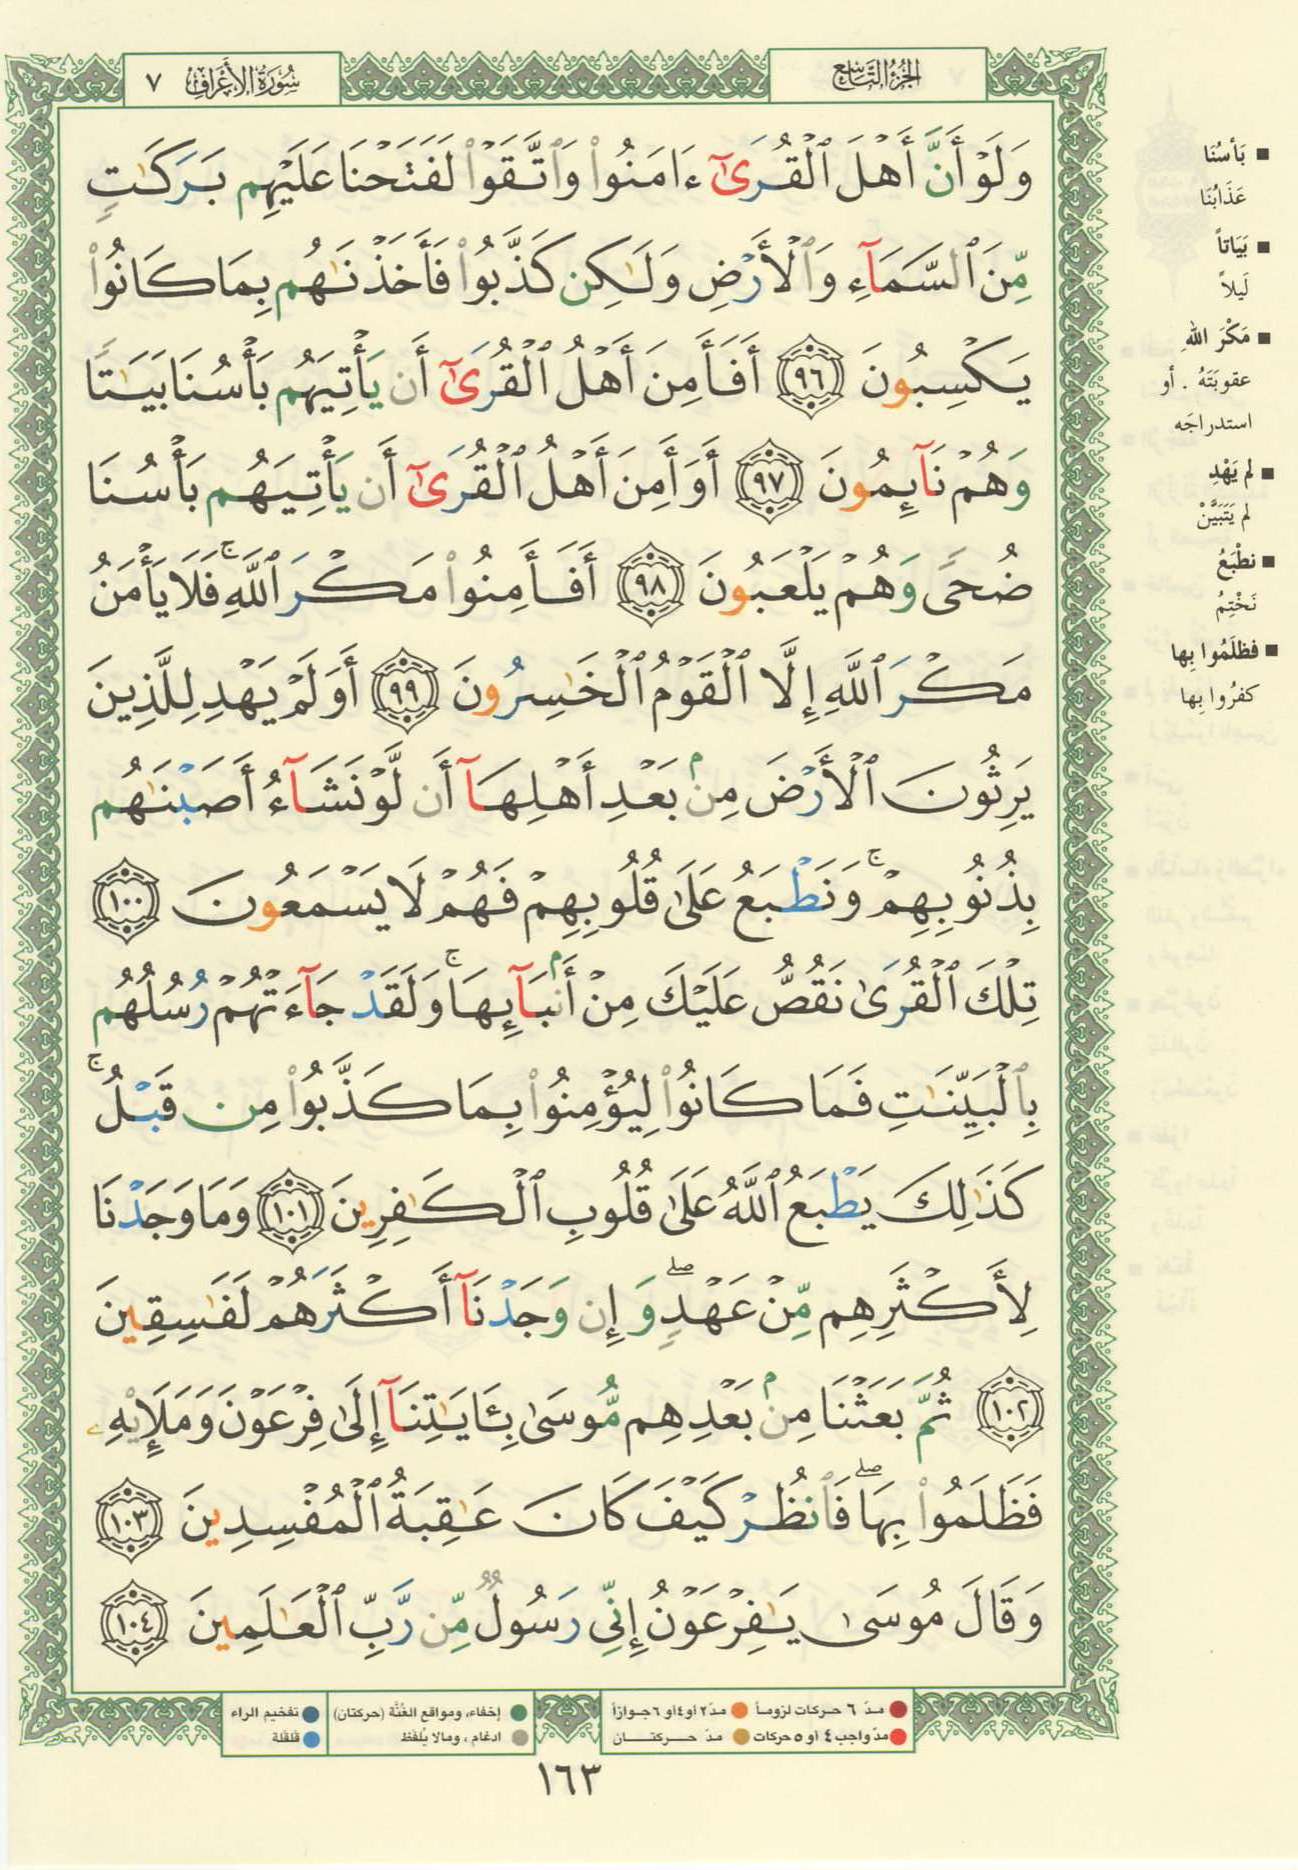 سُورَةُ الأَعْرَافِ ٧
الجُزْءُ التَّاسِعُ
وَلَوْ أَنَّ أَهْلَ ٱلْقُرَىٰٓ ءَامَنُوا۟ وَٱتَّقَوْا۟ لَفَتَحْنَا عَلَيْهِم بَرَكَٰتٍ
مِّنَ ٱلسَّمَآءِ وَٱلْأَرْضِ وَلَٰكِن كَذَّبُوا۟ فَأَخَذْنَٰهُم بِمَا كَانُوا۟
يَكْسِبُونَ ٩٦ أَفَأَمِنَ أَهْلُ ٱلْقُرَىٰٓ أَن يَأْتِيَهُم بَأْسُنَا بَيَٰتًا
وَهُمْ نَآئِمُونَ ٩٧ أَوَأَمِنَ أَهْلُ ٱلْقُرَىٰٓ أَن يَأْتِيَهُم بَأْسُنَا
ضُحًى وَهُمْ يَلْعَبُونَ ٩٨ أَفَأَمِنُوا۟ مَكْرَ ٱللَّهِ ۚ فَلَا يَأْمَنُ
مَكْرَ ٱللَّهِ إِلَّا ٱلْقَوْمُ ٱلْخَٰسِرُونَ ٩٩ أَوَلَمْ يَهْدِ لِلَّذِينَ
يَرِثُونَ ٱلْأَرْضَ مِنۢ بَعْدِ أَهْلِهَآ أَن لَّوْ نَشَآءُ أَصَبْنَٰهُم
بِذُنُوبِهِمْ ۚ وَنَطْبَعُ عَلَىٰ قُلُوبِهِمْ فَهُمْ لَا يَسْمَعُونَ ١٠٠
تِلْكَ ٱلْقُرَىٰ نَقُصُّ عَلَيْكَ مِنْ أَنۢبَآئِهَا ۚ وَلَقَدْ جَآءَتْهُمْ رُسُلُهُم
بِٱلْبَيِّنَٰتِ فَمَا كَانُوا۟ لِيُؤْمِنُوا۟ بِمَا كَذَّبُوا۟ مِن قَبْلُ ۚ
كَذَٰلِكَ يَطْبَعُ ٱللَّهُ عَلَىٰ قُلُوبِ ٱلْكَٰفِرِينَ ١٠١ وَمَا وَجَدْنَا
لِأَكْثَرِهِم مِّنْ عَهْدٍ ۖ وَإِن وَجَدْنَآ أَكْثَرَهُمْ لَفَٰسِقِينَ
١٠٢ ثُمَّ بَعَثْنَا مِنۢ بَعْدِهِم مُّوسَىٰ بِـَٔايَٰتِنَآ إِلَىٰ فِرْعَوْنَ وَمَلَإِي۟هِۦ
فَظَلَمُوا۟ بِهَا ۖ فَٱنظُرْ كَيْفَ كَانَ عَٰقِبَةُ ٱلْمُفْسِدِينَ ١٠٣
وَقَالَ مُوسَىٰ يَٰفِرْعَوْنُ إِنِّى رَسُولٌ مِّن رَّبِّ ٱلْعَٰلَمِينَ ١٠٤
■ بَأسُنَا
عَذَابُنَا
■ بَيَاتاً
لَيلاً
■ مَكْرَ اللهِ
عقوبَتَهُ . أو
استدراجَه
■ لم يَهْدِ
لم يَتَبَيَّنْ
■ نطْبَعُ
نَخْتِمُ
■ فظلَمُوا بِها
كفرُوا بِها
مدّ ٦ حركات لزوماً
مدّ ٢ أو ٤ أو ٦ جوازاً
مدّ واجب ٤ أو ٥ حركات
مدّ حركتان
إخفاء، ومواقع الغُنَّة (حركتان)
ادغام، ومالا يُلفَظ
تفخيم الراء
قلقلة
١٦٣